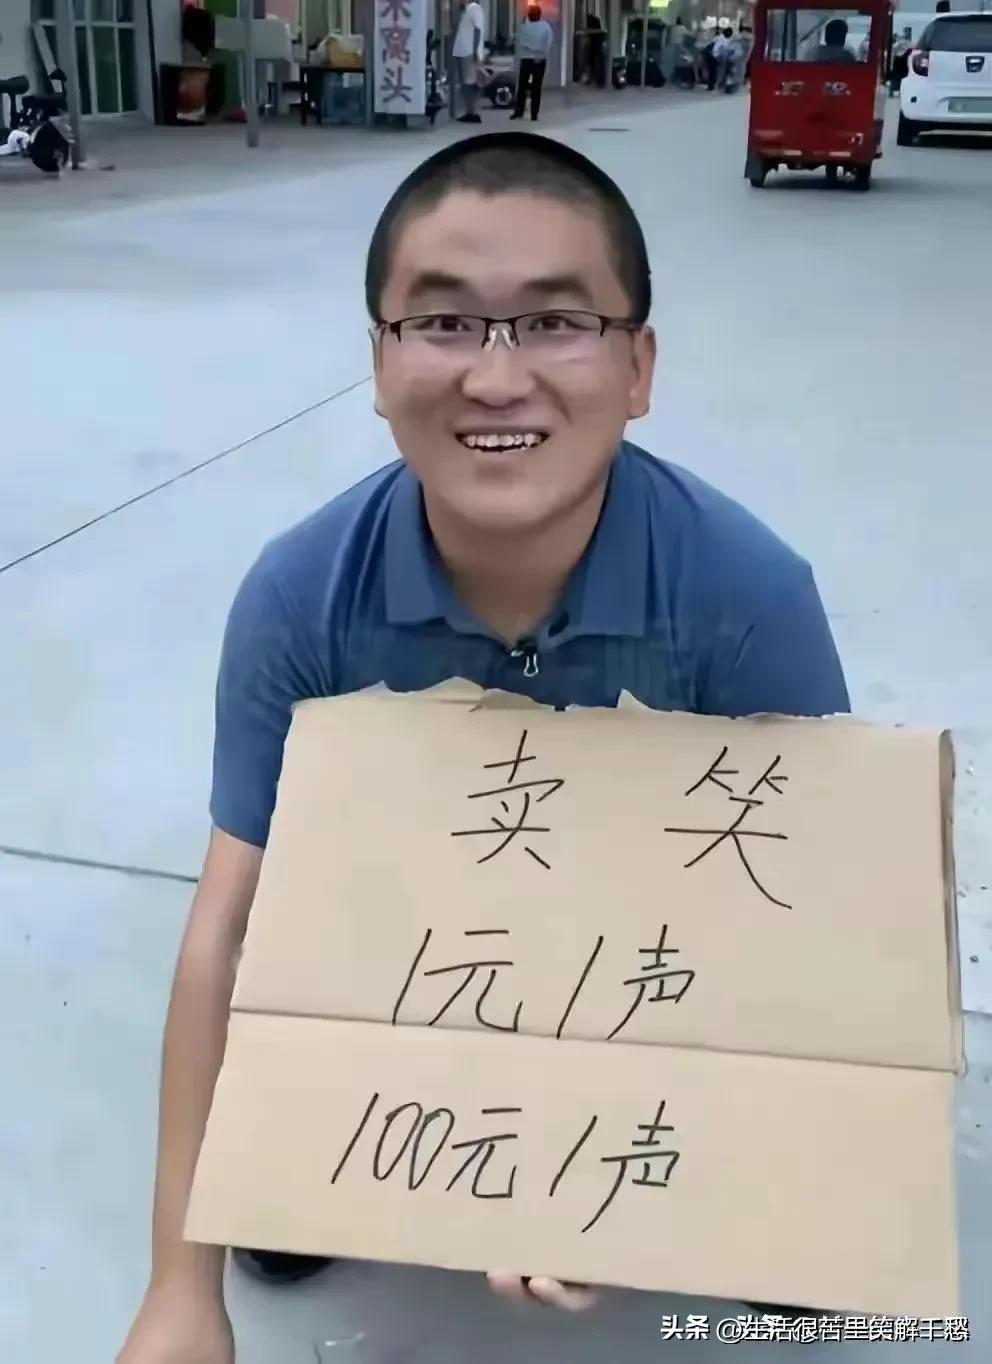 窝头
卖 笑
1元/声
100元/声
头条 @生活很苦里笑解千愁